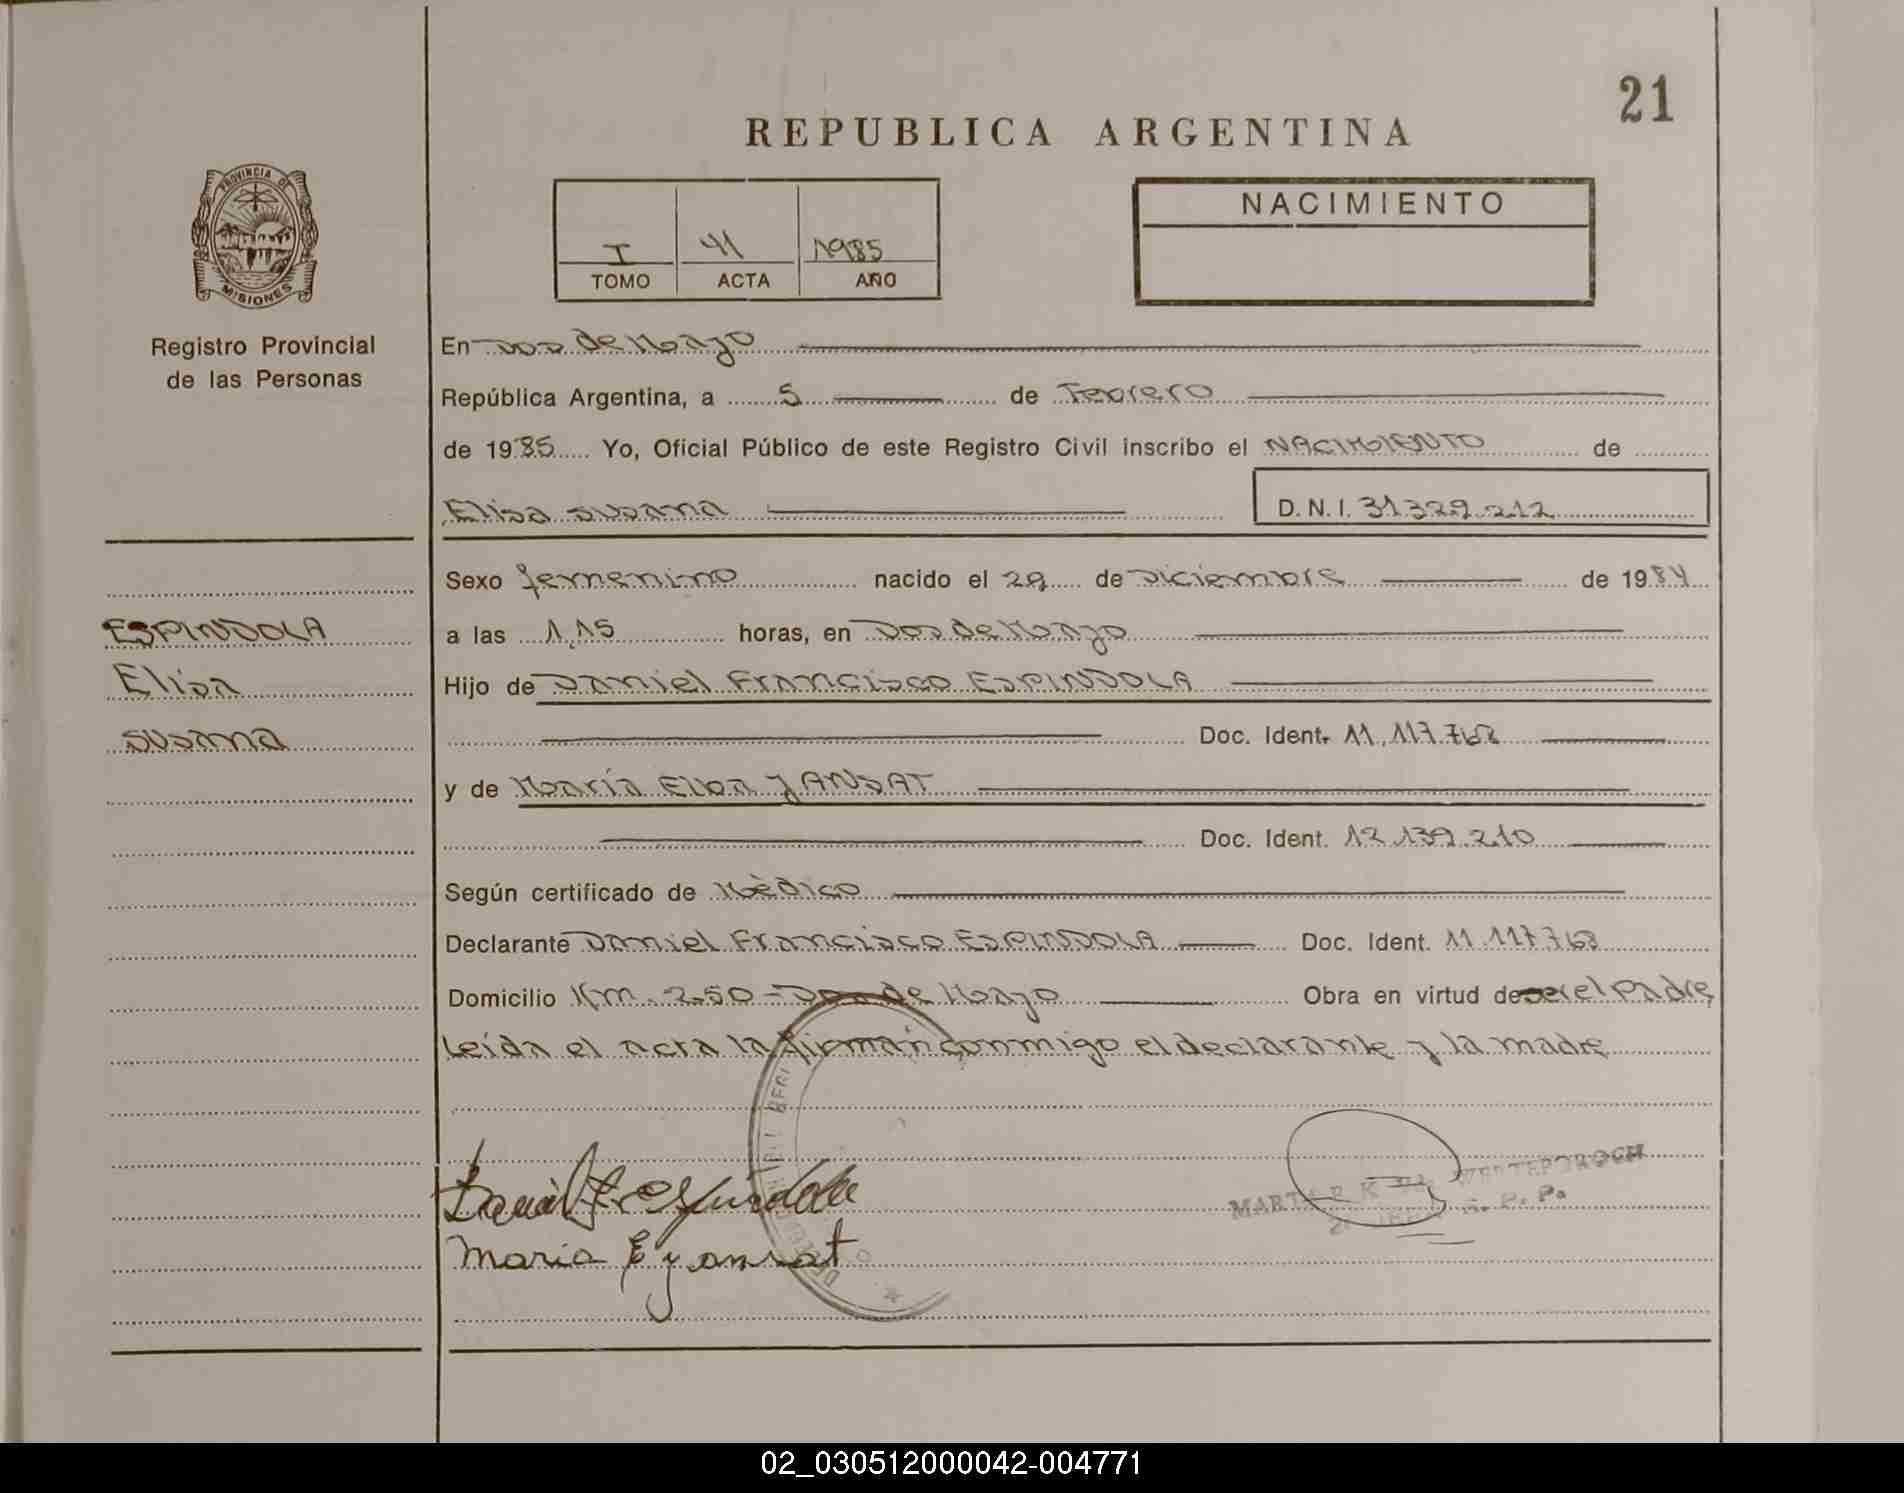 21
REPUBLICA ARGENTINA
PROVINCIA DE
MISIONES
Registro Provincial
de las Personas
I 41 1985
TOMO ACTA AÑO
NACIMIENTO
En Dos de Mayo
República Argentina, a 5 de Febrero
de 1985 Yo, Oficial Público de este Registro Civil inscribo el NACIMIENTO de
Elisa Susana D.N.I. 31329.212
Sexo femenino nacido el 29 de Diciembre de 1984
ESPINDOLA
Elisa
Susana
a las 1,15 horas, en Dos de Mayo
Hijo de Daniel Francisco ESPINDOLA
Doc. Ident. 11.117.768
y de María Elba YANSAT
Doc. Ident. 12.139.210
Según certificado de Mèdico
Declarante Daniel Francisco ESPINDOLA Doc. Ident. 11.117768
Domicilio Km. 250 - Dos de Mayo Obra en virtud de ser el Padre
Leída el acta la firman conmigo el declarante y la madre
Daniel F Espindola
Maria E Yansat
MARTA R. K
R. P. P.
02_030512000042-004771